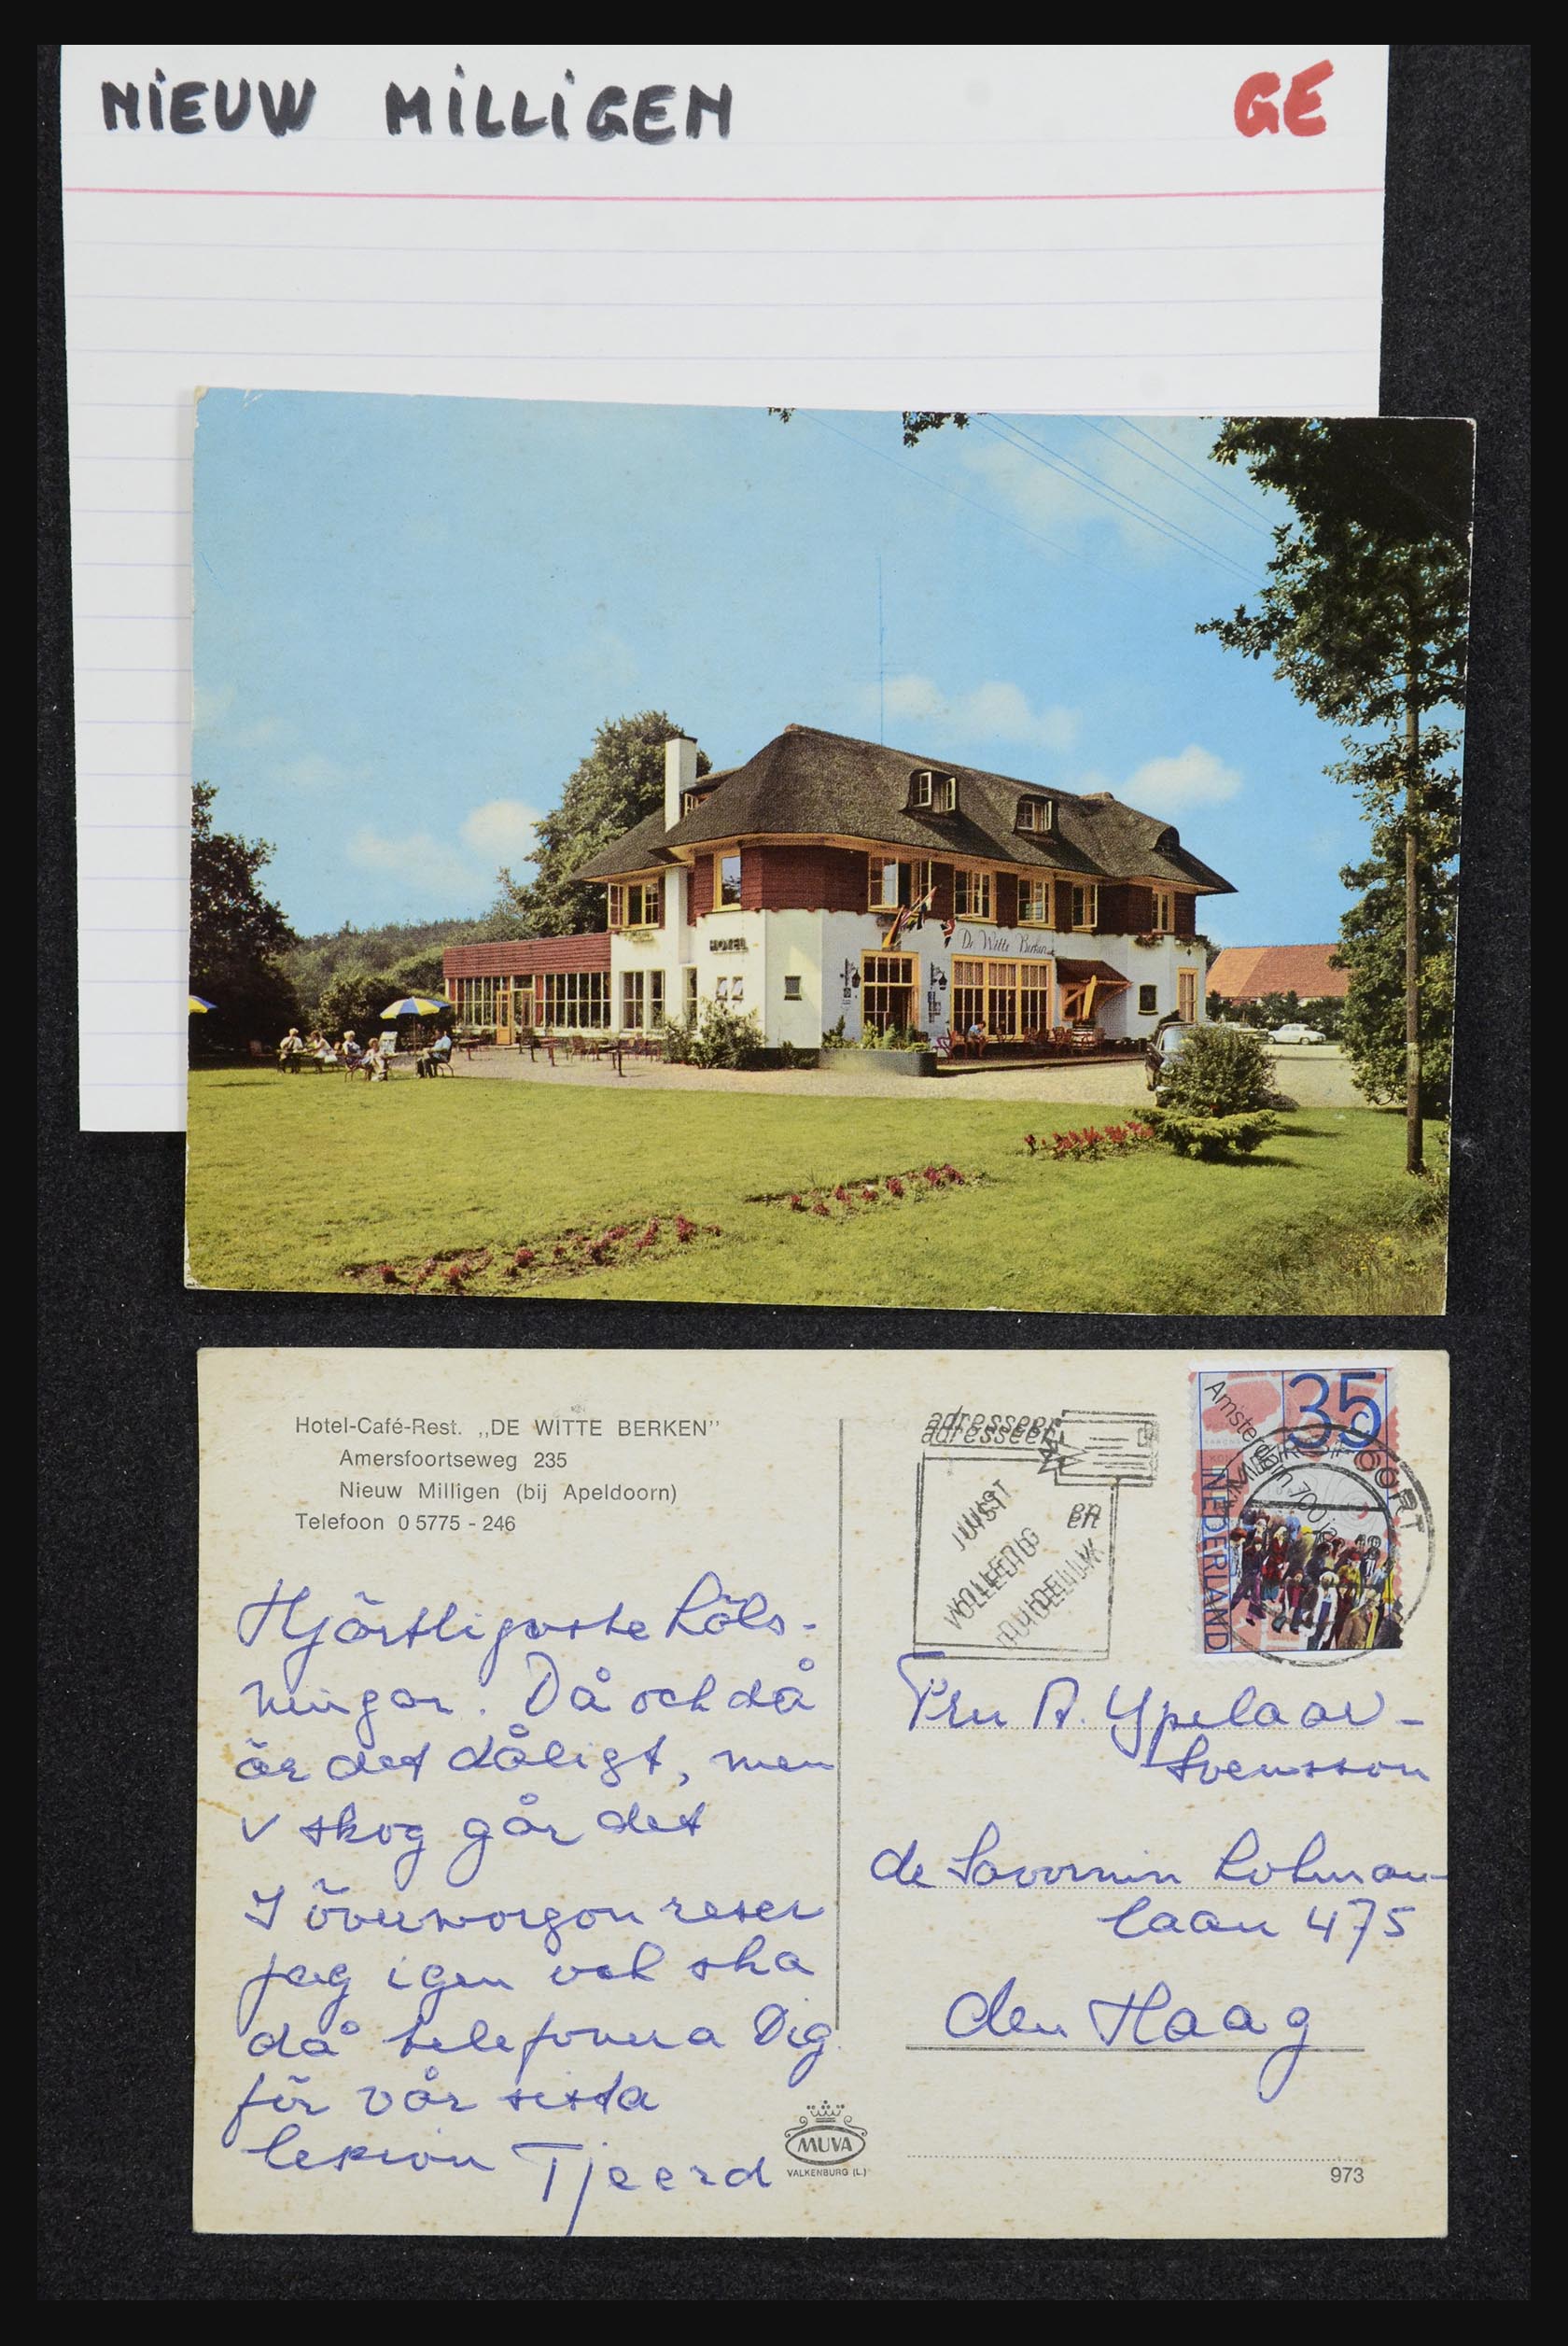 NIEUW MILLIGEN GE
HOTEL
De Witte Berken
Hotel-Café-Rest. „DE WITTE BERKEN”
Amersfoortseweg 235
Nieuw Milligen (bij Apeldoorn)
Telefoon 0 5775 - 246
Hjärtligaste häls-
ningar. Då och då
är det dåligt, men
v skog går det
I övermorgon reser
jag igen och ska
då telefonera Dig
för vår sista
lektion Tjeerd
MUVA
VALKENBURG (L.)
adresseer
adresseer
JUIST
VOLLEDIG
en
DUIDELIJK
Amsterdam 700 ja
35
NEDERLAND
AMERSFOORT
Fru A. Ypelaar-
Svensson
de Savornin Lohman-
laan 475
den Haag
973